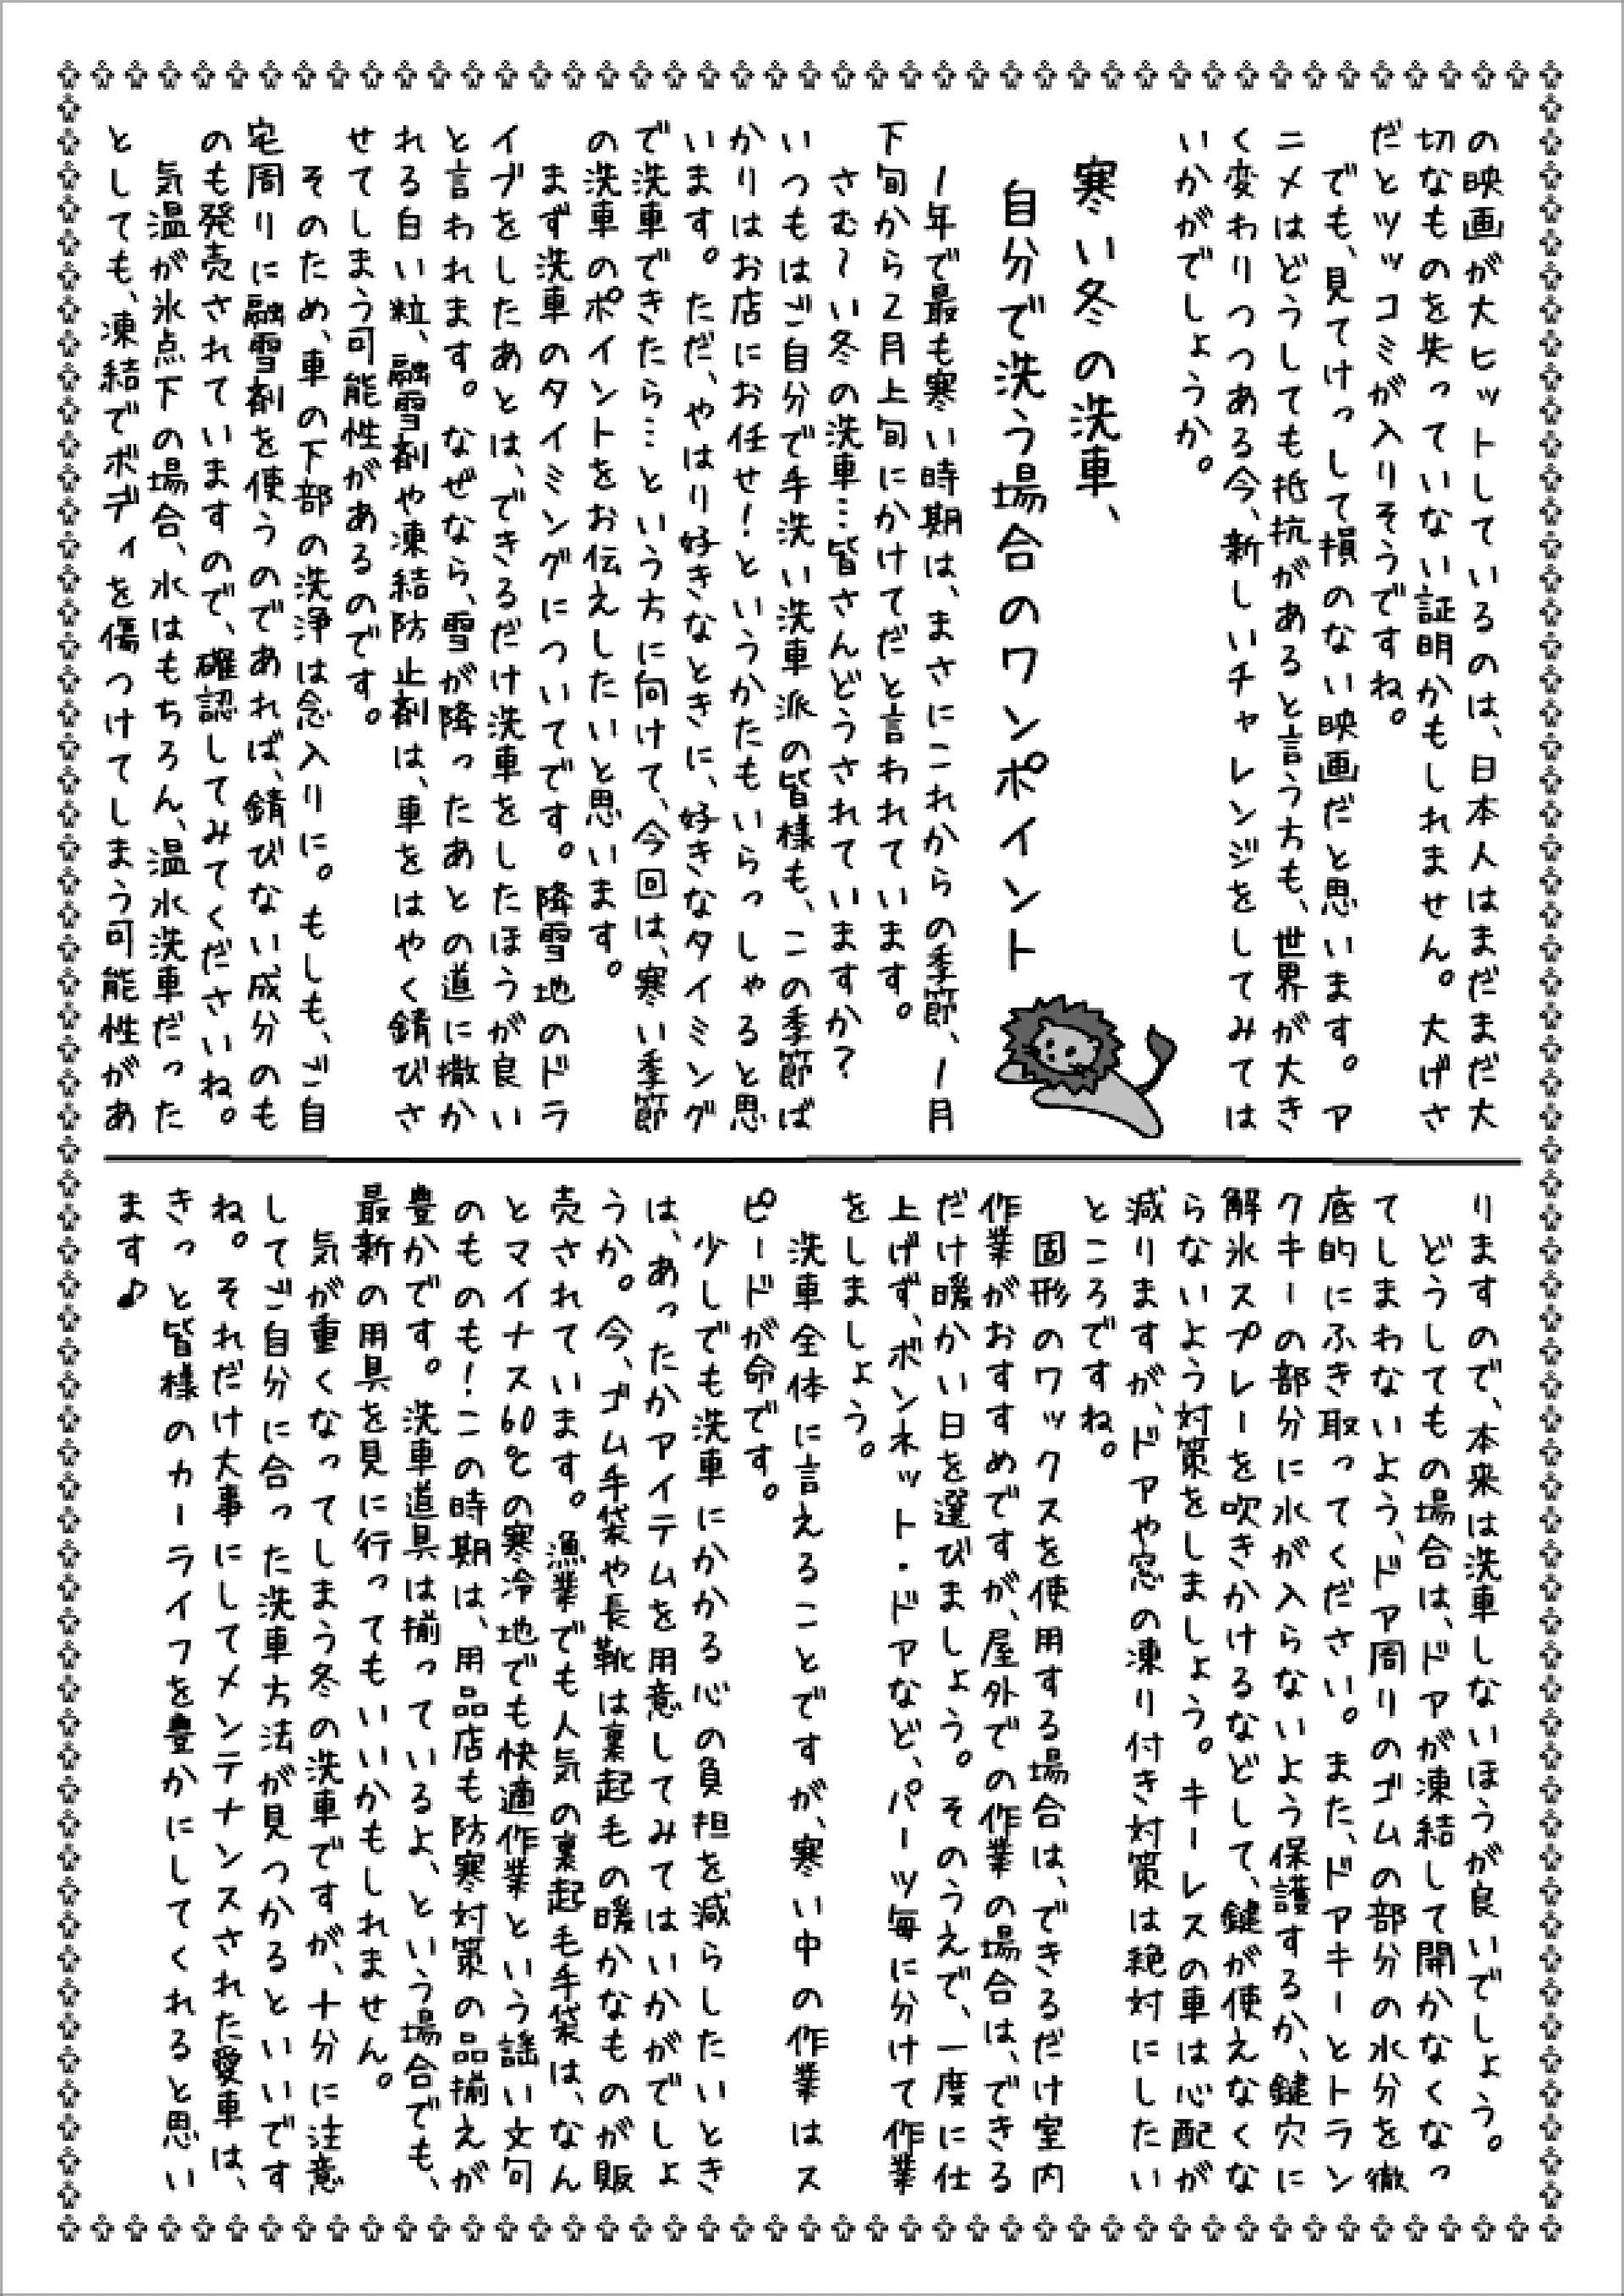 の映画が大ヒットしているのは、日本人はまだまだ大
切なものを失っていない証明かもしれません。大げさ
だとツッコミが入りそうですね。
でも、見てけっして損のない映画だと思います。ア
ニメはどうしても抵抗があると言う方も、世界が大き
く変わりつつある今、新しいチャレンジをしてみては
いかがでしょうか。
寒い冬の洗車、
自分で洗う場合のワンポイント
1年で最も寒い時期は、まさにこれからの季節、1月
下旬から2月上旬にかけてだと言われています。
さむ〜い冬の洗車…皆さんどうされていますか?
いつもはご自分で手洗い洗車派の皆様も、この季節ば
かりはお店にお任せ!というかたもいらっしゃると思
います。ただ、やはり好きなときに、好きなタイミング
で洗車できたら…という方に向けて、今回は、寒い季節
の洗車のポイントをお伝えしたいと思います。
まず洗車のタイミングについてです。降雪地のドラ
イブをしたあとは、できるだけ洗車をしたほうが良い
と言われます。なぜなら、雪が降ったあとの道に撒か
れる白い粒、融雪剤や凍結防止剤は、車をはやく錆びさ
せてしまう可能性があるのです。
そのため、車の下部の洗浄は念入りに。もしも、ご自
宅周りに融雪剤を使うのであれば、錆びない成分のも
のも発売されていますので、確認してみてくださいね。
気温が氷点下の場合、水はもちろん、温水洗車だった
としても、凍結でボディを傷つけてしまう可能性があ
りますので、本来は洗車しないほうが良いでしょう。
どうしてもの場合は、ドアが凍結して開かなくなっ
てしまわないよう、ドア周りのゴムの部分の水分を徹
底的にふき取ってください。また、ドアキーとトラン
クキーの部分に水が入らないよう保護するか、鍵穴に
解氷スプレーを吹きかけるなどして、鍵が使えなくな
らないよう対策をしましょう。キーレスの車は心配が
減りますが、ドアや窓の凍り付き対策は絶対にしたい
ところですね。
固形のワックスを使用する場合は、できるだけ室内
作業がおすすめですが、屋外での作業の場合は、できる
だけ暖かい日を選びましょう。そのうえで、一度に仕
上げず、ボンネット・ドアなど、パーツ毎に分けて作業
をしましょう。
洗車全体に言えることですが、寒い中の作業はス
ピードが命です。
少しでも洗車にかかる心の負担を減らしたいとき
は、あったかアイテムを用意してみてはいかがでしょ
うか。今、ゴム手袋や長靴は裏起毛の暖かなものが販
売されています。漁業でも人気の裏起毛手袋は、なん
とマイナス60℃の寒冷地でも快適作業という謡い文句
のものも!この時期は、用品店も防寒対策の品揃えが
豊かです。洗車道具は揃っているよ、という場合でも、
最新の用具を見に行ってもいいかもしれません。
気が重くなってしまう冬の洗車ですが、十分に注意
してご自分に合った洗車方法が見つかるといいです
ね。それだけ大事にしてメンテナンスされた愛車は、
きっと皆様のカーライフを豊かにしてくれると思い
ます♪